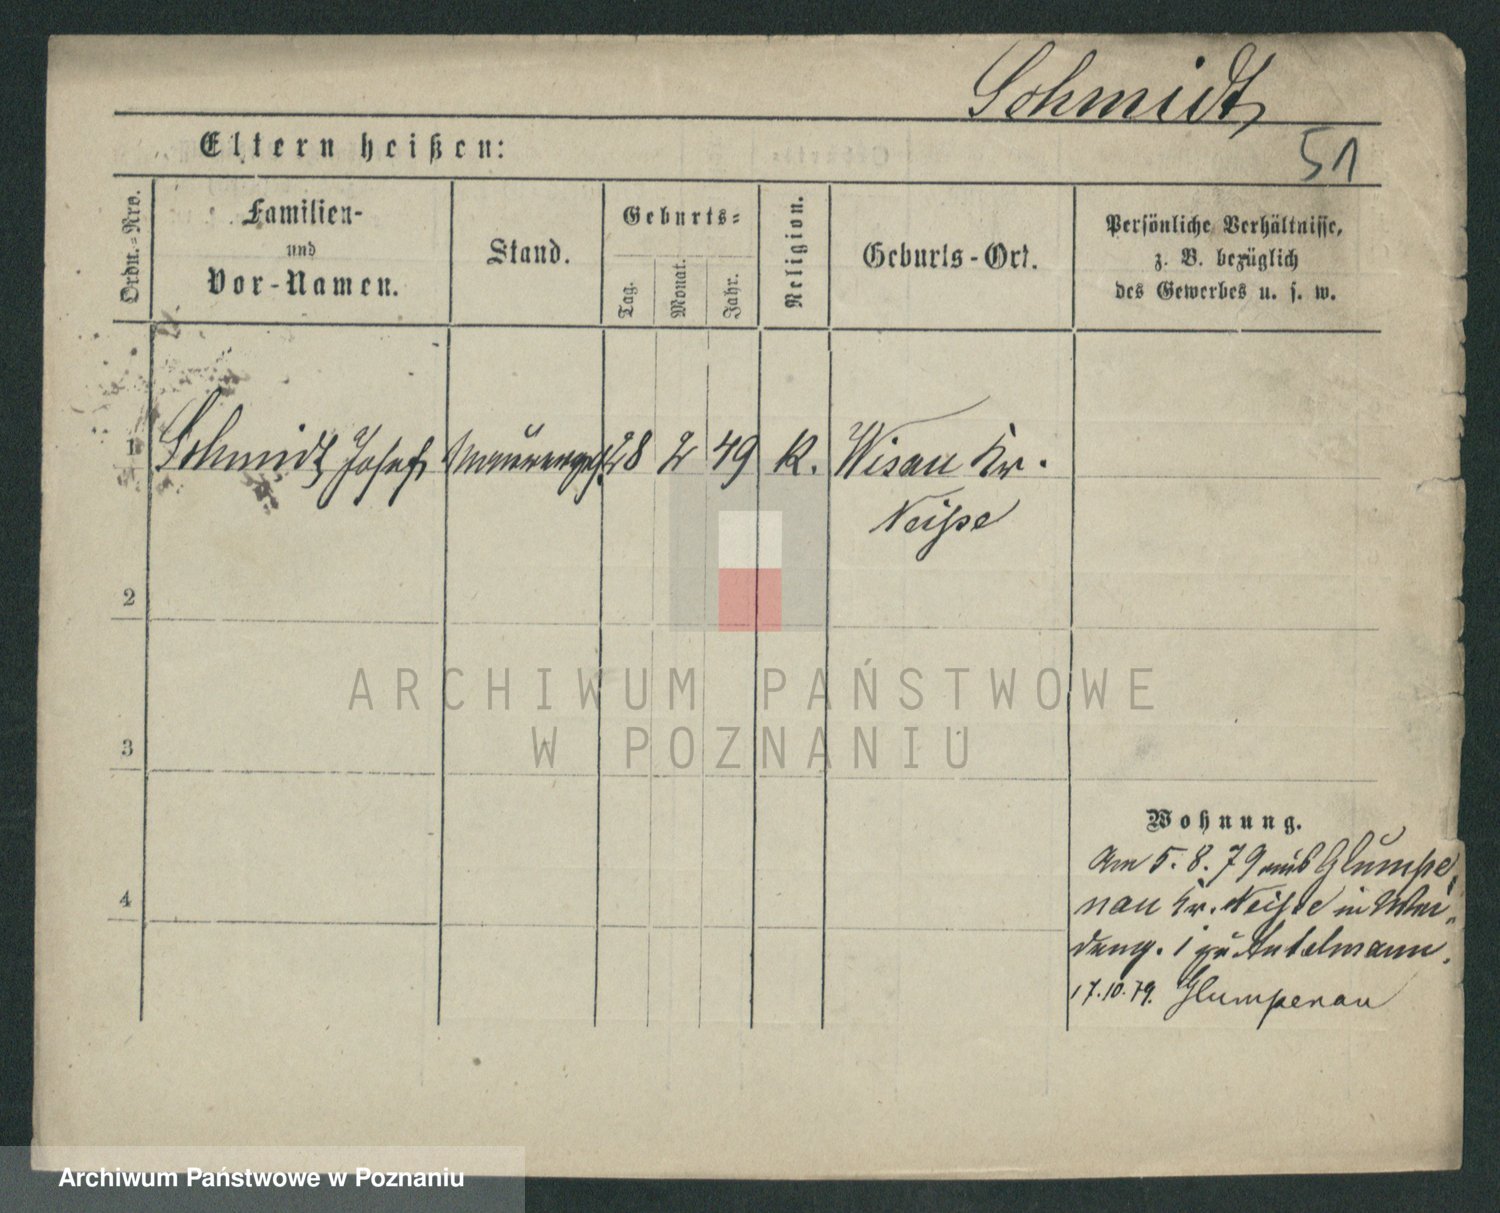 Schmidt
51
Eltern heißen:
Ordn.-Nro.
Familien-
und
Vor-Namen.
Stand.
Geburts-
Tag.
Monat.
Jahr.
Religion.
Geburts-Ort.
Persönliche Verhältnisse,
z. B. bezüglich
des Gewerbes u. s. w.
1 Schmidt Josef Maurerges. 28 2 49 K. Wisau Kr.
Neiße
2
3
4
Wohnung.
Am 5.8.79 aus Glumpe-
nau Kr. Neiße in
zu
17.10.79. Glumpenau
ARCHIWUM PAŃSTWOWE
W POZNANIU
Archiwum Państwowe w Poznaniu